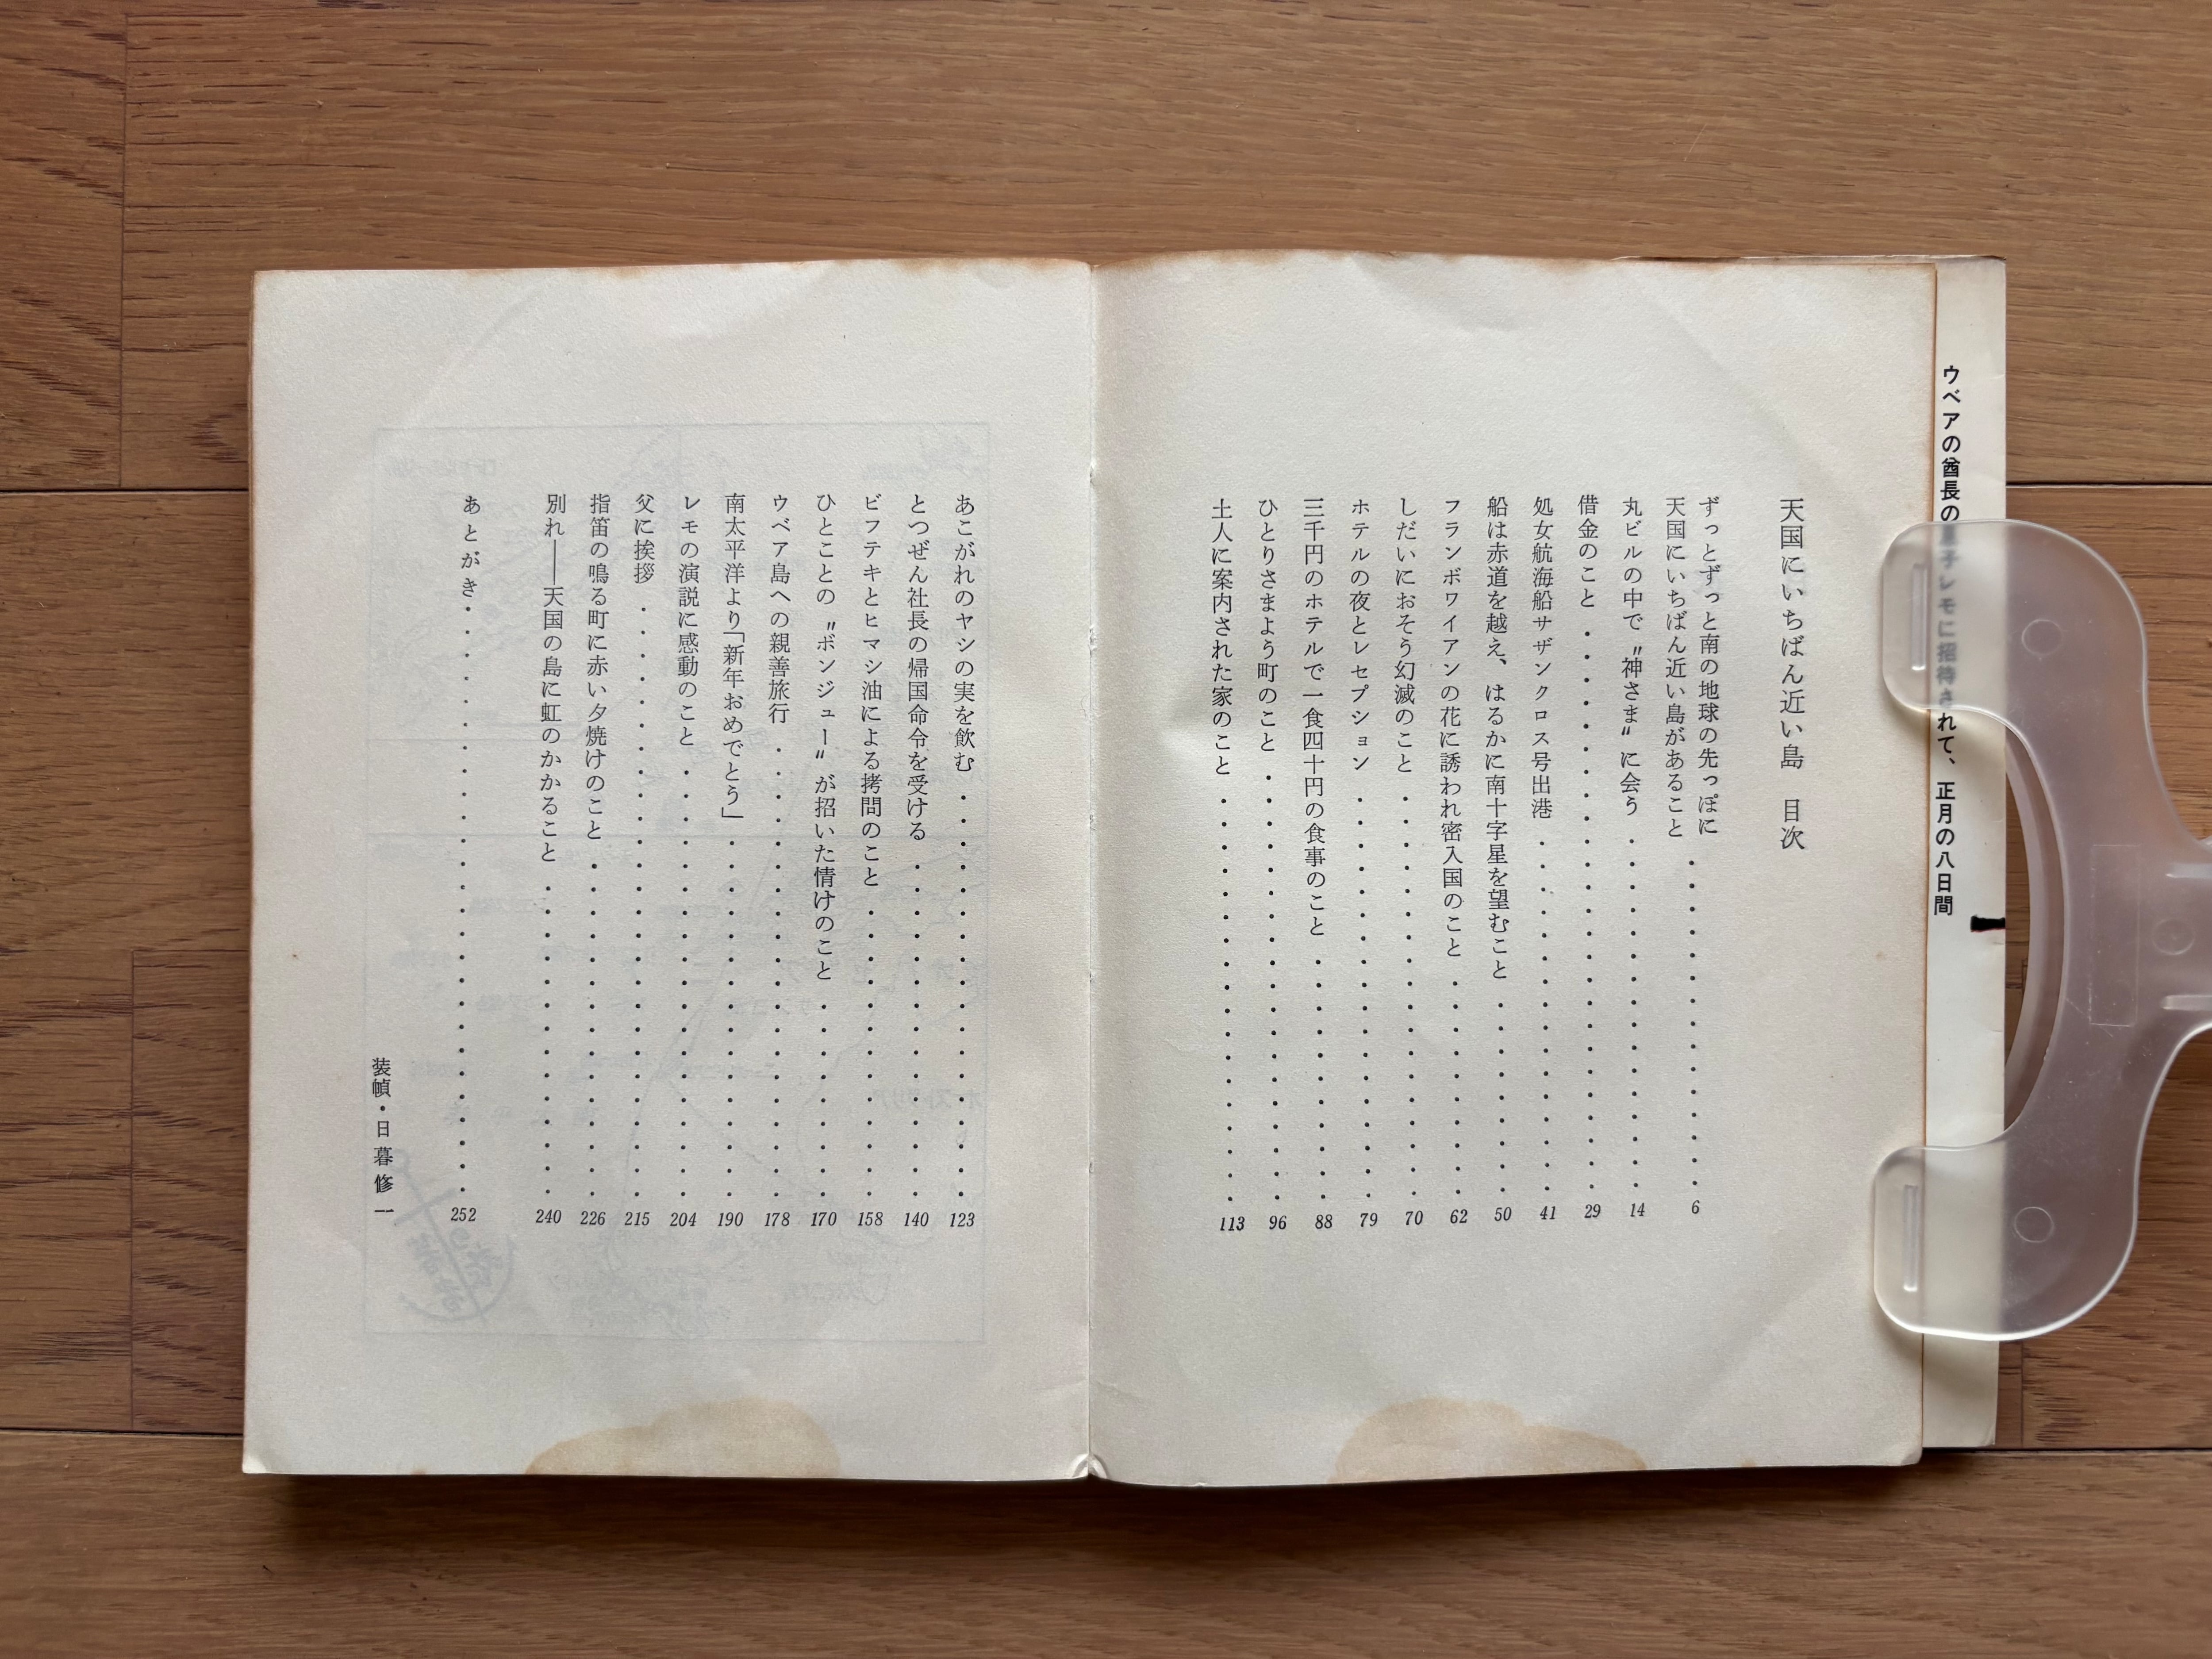 ウベアの酋長の息子レモに招待されて、正月の八日間
天国にいちばん近い島　目次
ずっとずっと南の地球の先っぽに
天国にいちばん近い島があること・・・・・・・・・・・・・・・6
丸ビルの中で〝神さま〟に会う・・・・・・・・・・・・・・・・14
借金のこと・・・・・・・・・・・・・・・・・・・・・・・・・29
処女航海船サザンクロス号出港・・・・・・・・・・・・・・・・41
船は赤道を越え、はるかに南十字星を望むこと・・・・・・・・・50
フランボワイアンの花に誘われ密入国のこと・・・・・・・・・・62
しだいにおそう幻滅のこと・・・・・・・・・・・・・・・・・・70
ホテルの夜とレセプション・・・・・・・・・・・・・・・・・・79
三千円のホテルで一食四十円の食事のこと・・・・・・・・・・・88
ひとりさまよう町のこと・・・・・・・・・・・・・・・・・・・96
土人に案内された家のこと・・・・・・・・・・・・・・・・・・113
あこがれのヤシの実を飲む・・・・・・・・・・・・・・・・・・123
とつぜん社長の帰国命令を受ける・・・・・・・・・・・・・・・140
ビフテキとヒマシ油による拷問のこと・・・・・・・・・・・・・158
ひとことの〝ボンジュー〟が招いた情けのこと・・・・・・・・・170
ウベア島への親善旅行・・・・・・・・・・・・・・・・・・・・178
南太平洋より「新年おめでとう」・・・・・・・・・・・・・・・・190
レモの演説に感動のこと・・・・・・・・・・・・・・・・・・・204
父に挨拶・・・・・・・・・・・・・・・・・・・・・・・・・・215
指笛の鳴る町に赤い夕焼けのこと・・・・・・・・・・・・・・・226
別れ――天国の島に虹のかかること・・・・・・・・・・・・・・240
あとがき・・・・・・・・・・・・・・・・・・・・・・・・・・252
装幀・日暮修一